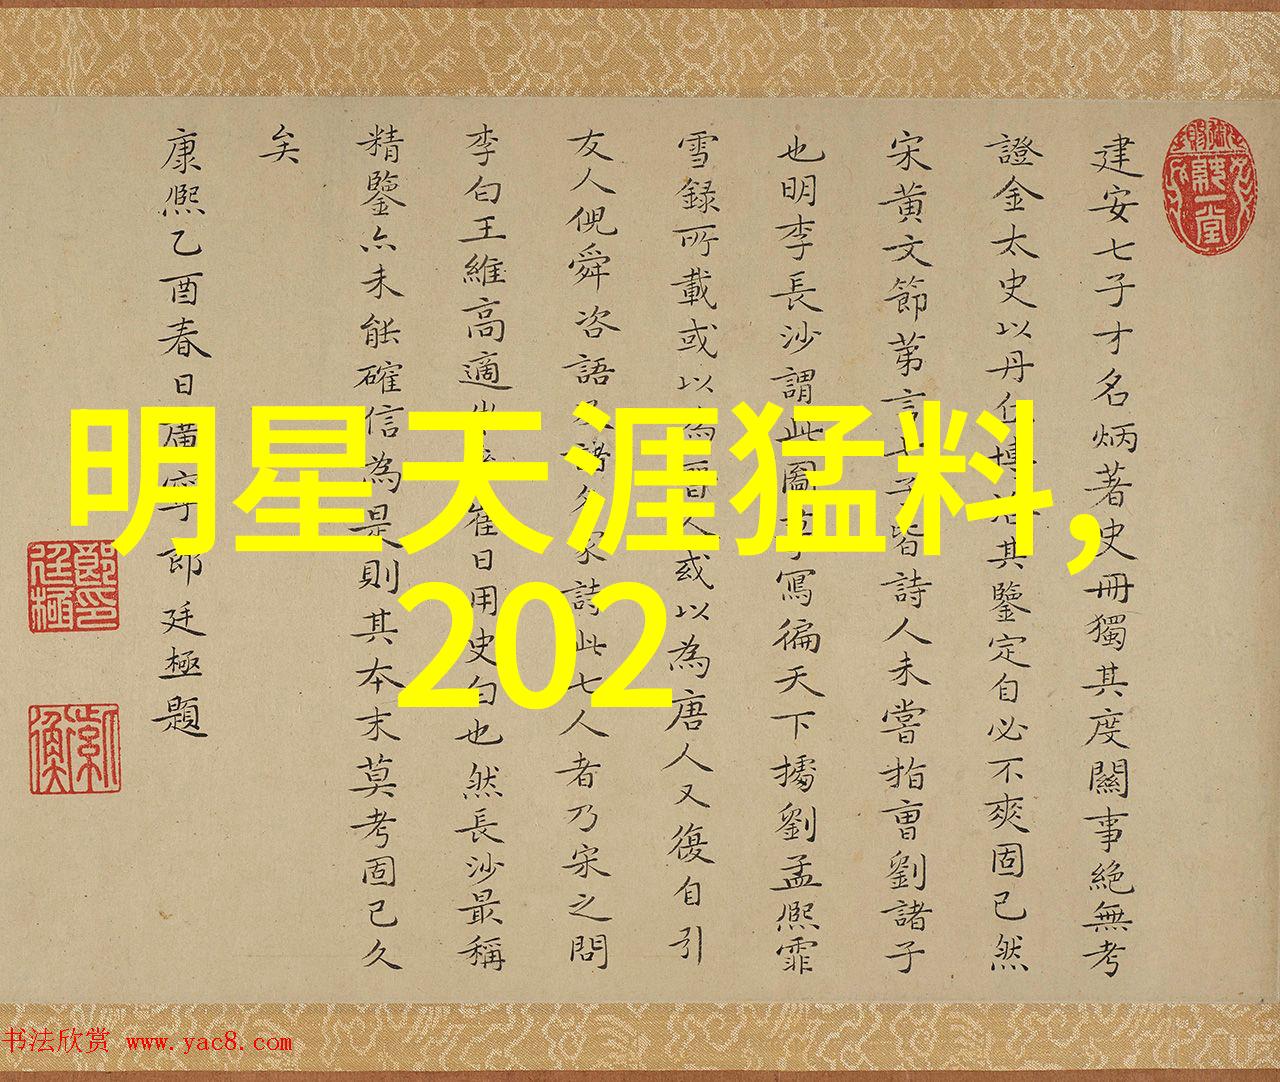 建安七子才名炳著史冊獨其度關事絕無考
證金太史以丹仁博洽其鑒定自必不爽固已然
宋黃文節第言七子皆詩人未嘗指曹劉諸子
也明李長沙謂此圖摹寫徧天下據劉孟熈霏
雪録所載或以為晋人或以為唐人又復自引
友人倪舜咨語及諸名家詩此七人者乃宋之問
李白王維高適崔日用史白也然長沙最稱
精鑒亦未能確信為是則其本末莫考固已久
矣
康熈乙酉春日廣寧郎廷極題
明星天涯猛料,
202
书法欣赏 www.yac8.com